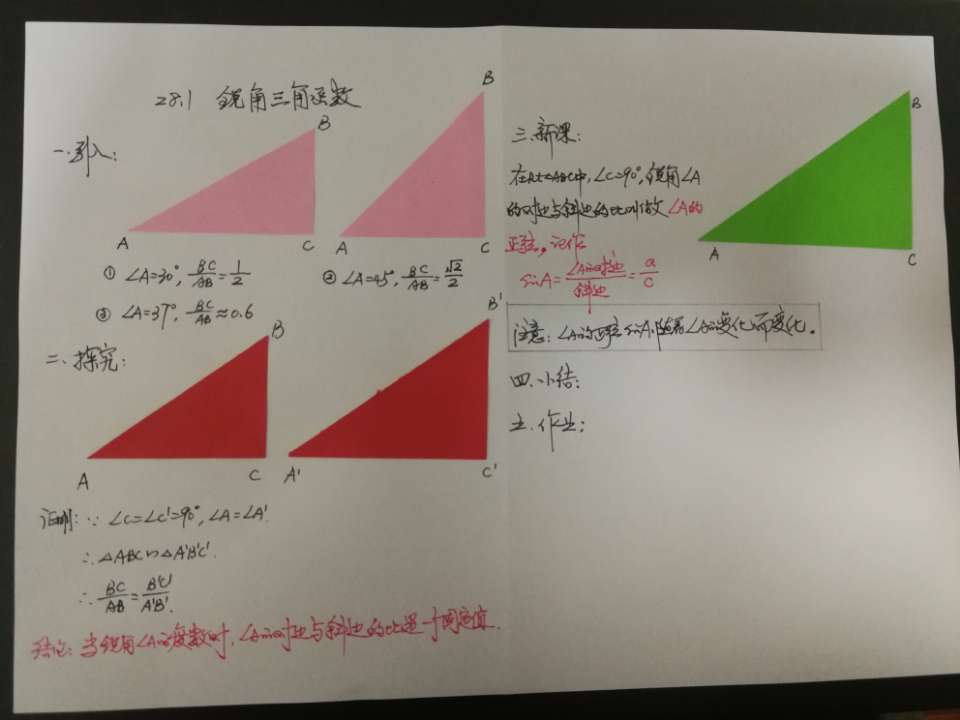 28.1 锐角三角函数
一.引入:
B
A
C
B
A
C
① ∠A=30°, BC/AB=1/2
② ∠A=45°, BC/AB=√2/2
③ ∠A=37°, BC/AB≈0.6
二.探究:
B
A
C
B'
A'
C'
证明: ∵ ∠C=∠C'=90°, ∠A=∠A'.
∴ △ABC∽△A'B'C'.
∴ BC/AB=B'C'/A'B'.
结论: 当锐角∠A的度数时, ∠A的对边与斜边的比是一个固定值.
三.新课:
B
A
C
在Rt△ABC中, ∠C=90°, 锐角∠A
的对边与斜边的比叫做∠A的
正弦, 记作
sinA=∠A的对边/斜边=a/c
注意: ∠A的正弦sinA随着∠A的变化而变化.
四.小结:
五.作业: